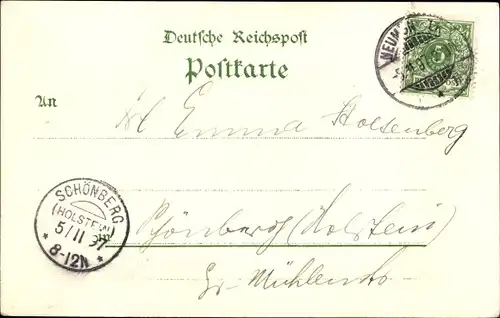 Deutsche Reichspost
Postkarte
NEUM
5.11.97
5
An
Emma Holsenberg
SCHÖNBERG
(HOLSTEIN)
5/11 97
* 8-12N *
in
Schönberg (Holstein)
Gr. Mühlenstr